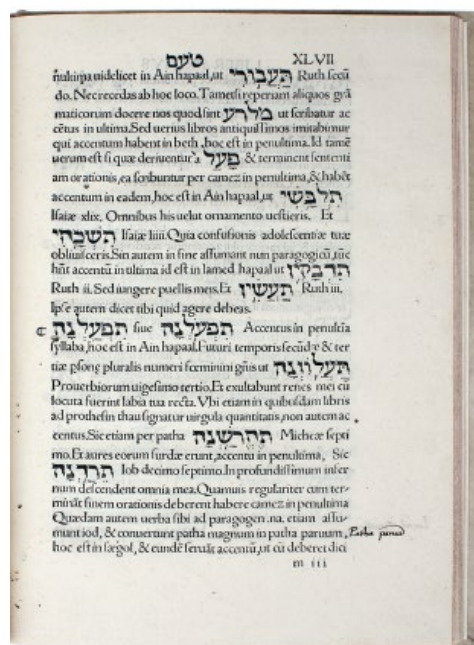 טעם XLVII
nukirpa uidelicet in Ain hapaal, ut תַּעֲבוּרִי Ruth secū
do. Nec recedas ab hoc loco. Tametsi reperiam aliquos grā
maticorum docere nos quod sint מלרע ut scribatur ac
cētus in ultima. Sed uerius libros antiquissimos imitabimur
qui accentum habent in beth, hoc est in penultima. Id tamē
uerum est si quæ deriuentur a פָּעַל & terminent sententi
am orationis, ea scribuntur per camez in penultima, & habēt
accentum in eadem, hoc est in Ain hapaal, ut תִלְבָּשִׁי
Isaiæ xlix. Omnibus his uelut ornamento uestieris. Et
תִּשְׁכָּחִי Isaiæ liiii. Quia confusionis adolescentiæ tuæ
obliuisceris. Sin autem in fine assumant nun paragogicū, tūc
hñt accentū in ultima id est in lamed hapaal ut תִדְבָּקִין
Ruth ii. Sed iungere puellis meis. Et תַּעֲשִׂין Ruth iii.
Ipse autem dicet tibi quid agere debeas.
¶ תִפְעַלְנָה siue תִּפְעֹלְנָה Accentus in penultīa
syllaba, hoc est in Ain hapaal. Futuri temporis secūdæ & ter
tiæ psonę pluralis numeri fœminini gñis ut תַּעֲלֹזְנָה
Prouerbiorum uigesimo tertio. Et exultabunt renes mei cū
locuta fuerint labia tua recta. Vbi etiam in quibusdam libris
ad prothesin thau signatur uirgula quantitatis, non autem ac
centus. Sic etiam per patha תֶּחֱרַשְׁנָה Micheæ septi
mo. Et aures eorum surdæ erunt, accentu in penultima. Sic
תֵּרַדְנָה Iob decimo septimo. In profundissimum infer
num descendent omnia mea. Quamuis regulariter cum ter-
minat finem orationis deberent habere camez in penultima
Quædam autem uerba sibi ad paragogen .na. etiam assu-
munt iod, & conuertunt patha magnum in patha paruum,
hoc est in sægol, & eundē seruāt accentū, ut cū deberet dici
Patha parvū
m iii